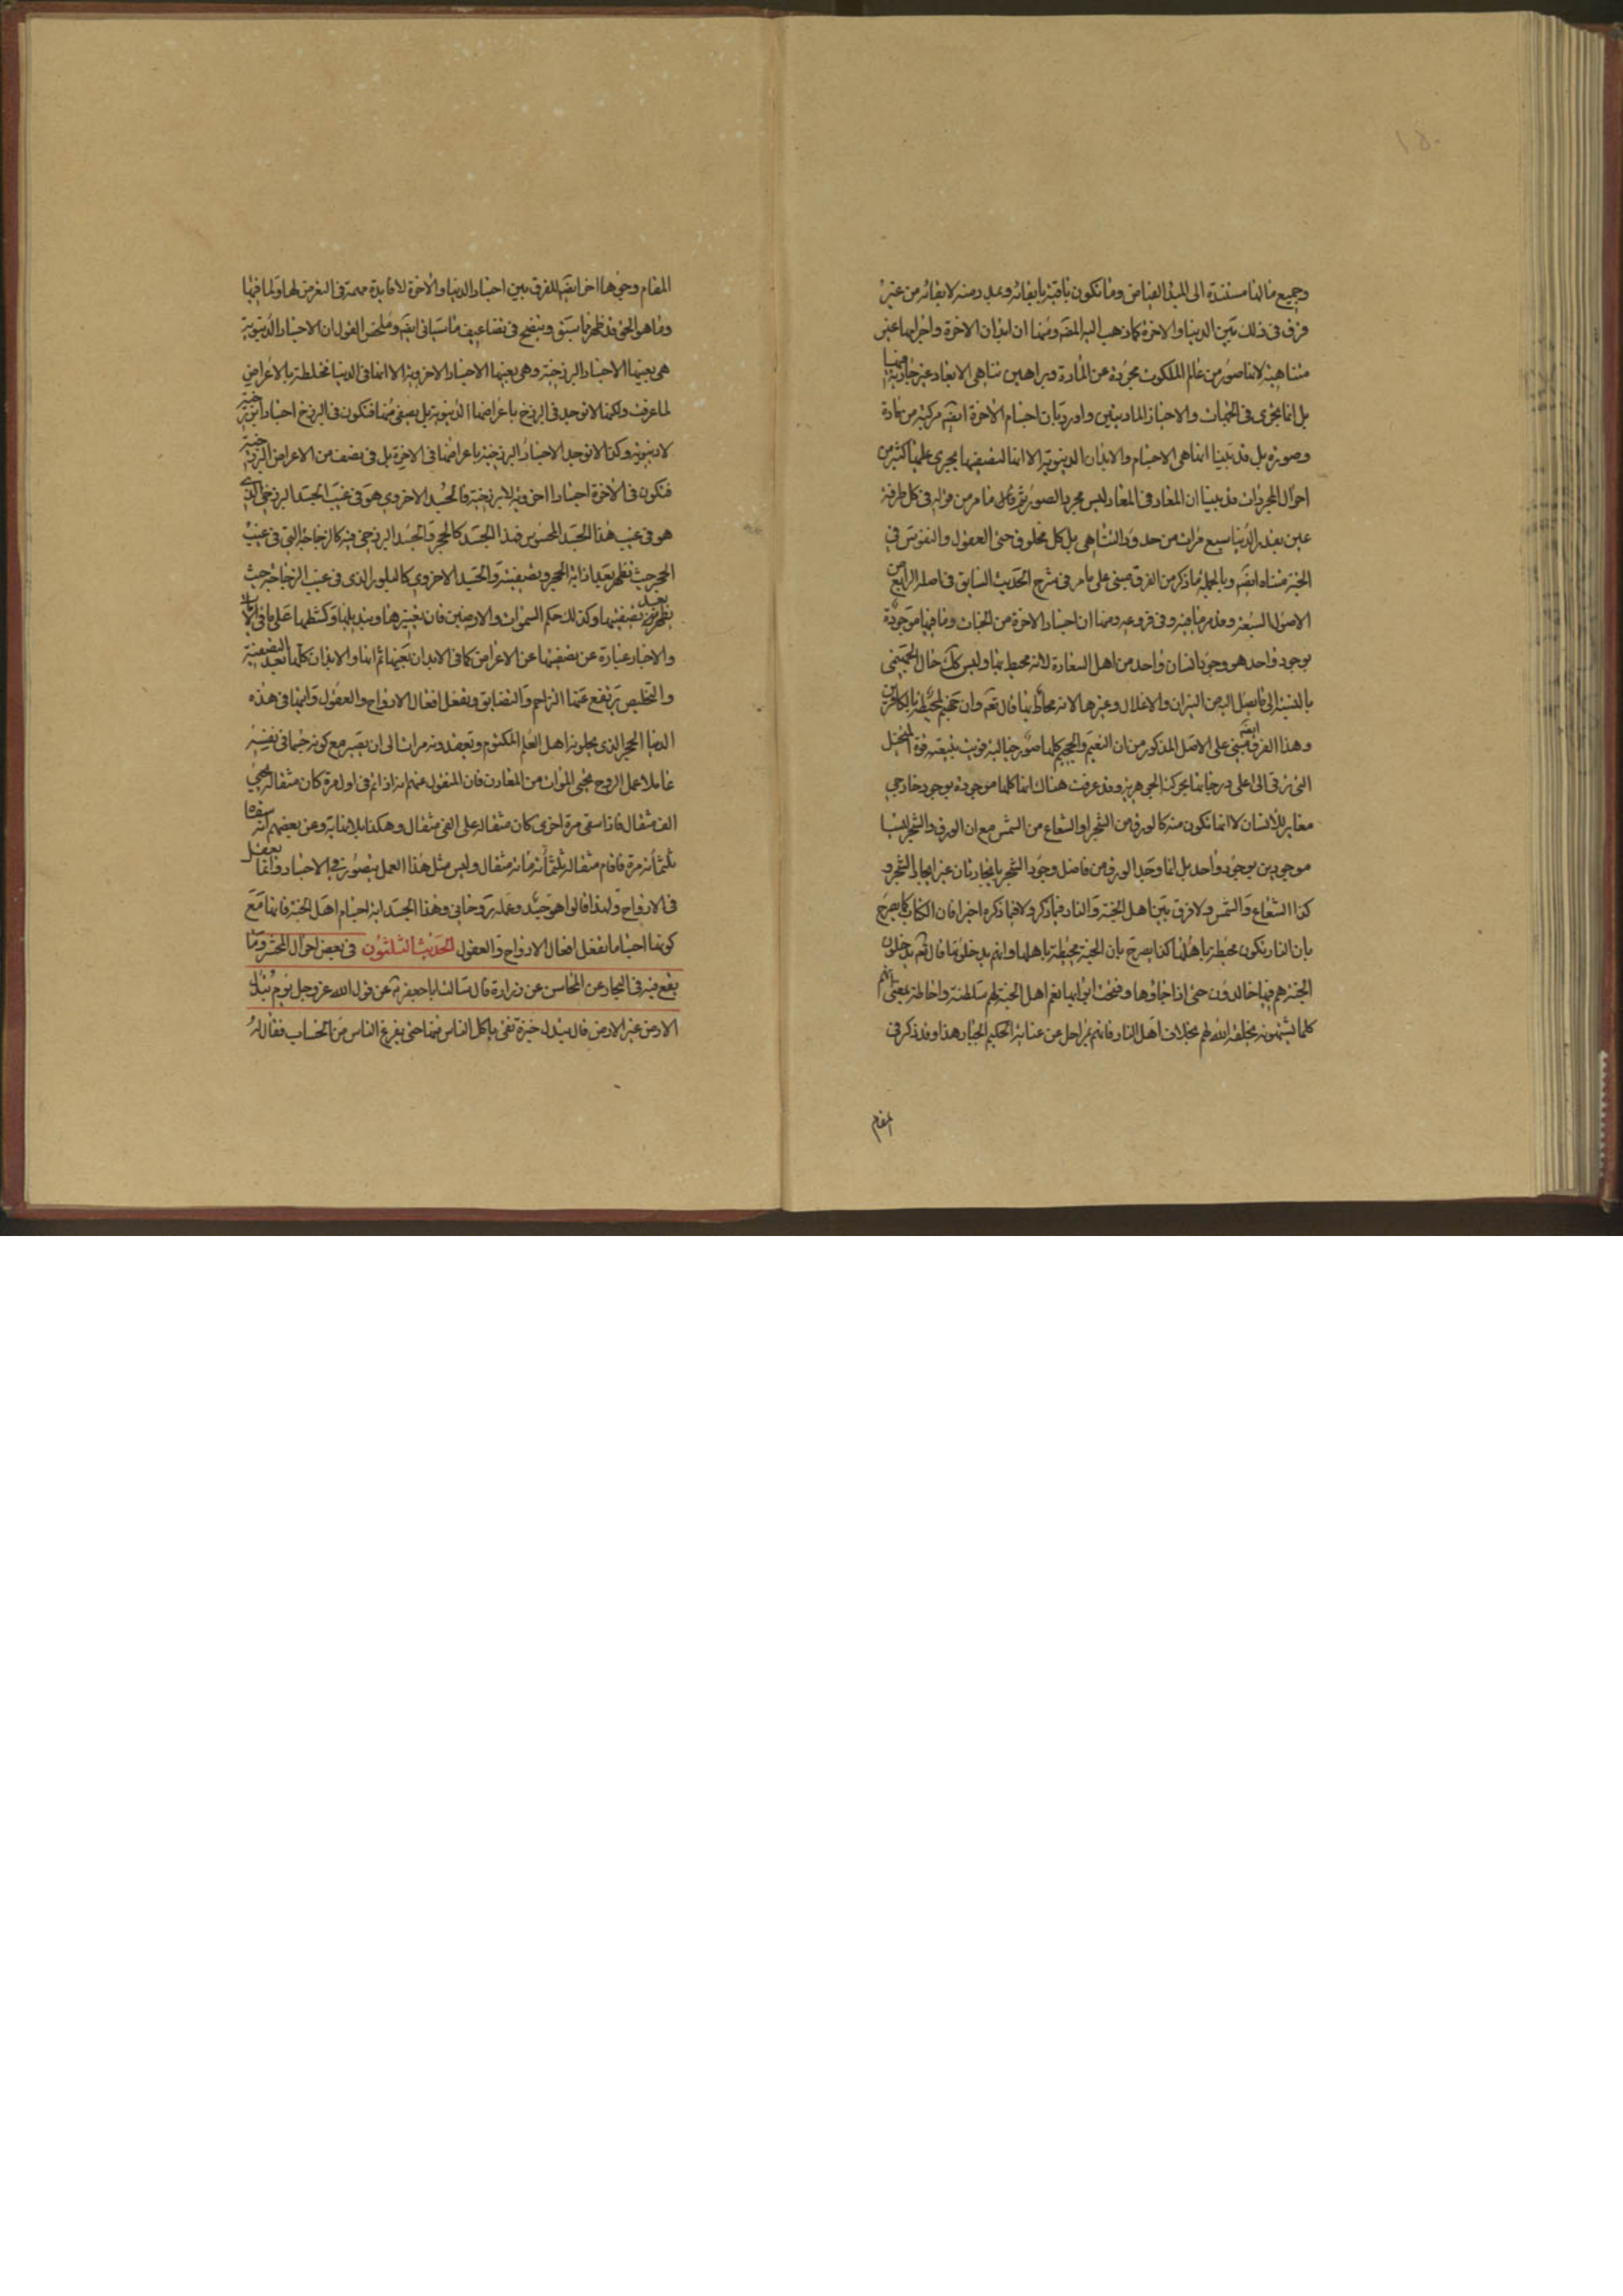 ١٥٠
وجميع ما لنا مستندة الى المبدء الفياض وما تكون باقية بابقائه وعدد منه لابقائه من غير
فرق فى ذلك بين الدنيا والاخرة كما ذهب اليه المصّ ومنها ان ابدان الاخرة واجرامها غير
متناهية لانها صور من عالم الملكوت مجردة عن المادة وبراهين تناهى الابعاد غير جارية فيها
بل انما يجرى فى الجهات والاحياز الماديتين واورد بان اجسام الاخرة ايضا مركبة من مادة
وصورة بل قد بينا انها هى الاجسام والابدان الدنيوية الا انها لتصفيتها يجرى عليها كثير من
احوال المجردات وقد بينا ان المعاد فى المعاد ليس مجرد الصور ثم تامل ما مر من قوله فى كل طرفة
عين بقدر الدنيا سبع مرات من حدود التناهى بل كل مخلوق حتى العقول والنفوس فى
الجنة متناه ايضا وبالجملة ما ذكر من الفرق مبنى على ما مر فى شرح الحديث السابق فى اصله الرابع من
الاصول السبعة وقد مر ما فيه وفى فروعه ومنها ان اجساد الاخرة من الجنات وما فيها موجودة
بوجود واحد هو وجود انسان واحد من اهل السعادة لانه محيط بها وليس كك حال الجهنمى
بالنسبة الى ما يصل اليه من النيران والاغلال وغيرها لانه محاط بها قال تعم وان جهنم لمحيطة بالكافرين
وهذا الفرق ايضا مبنى على الاصل المذكور من ان النعيم والجحيم كلها صور خيالية قويت بتبعية قوة المتخيل
التى ترقى الى اعلى درجاتها بحركته الجوهرية وقد عرفت هناك انها كلها موجودة بوجود خارجى
مغاير للانسان لا انها تكون منه كالورق من الشجر او الشعاع من الشمس مع ان الورق والشجر ليسا
موجودين بوجود واحد بل انما وجد الورق من فاضل وجود الشجر بايجاد ثان غير ايجاد الشجر و
كذا الشعاع والشمس ولا فرق بين اهل الجنة والنار فيما ذكر ولا فيما ذكره اخيرا فان الكتاب كما صرح
بان النار تكون محيطة باهلها كذا يصرح بان الجنة محيطة باهلها وانهم يدخلونها قال تعم يدخلون
الجنة هم فيها خالدون حتى اذا جاؤها وفتحت ابوابها نعم اهل الجنة لهم سلطنة واحاطة بمعنى انهم
كلما يشتهونه يخلقه الله لهم بخلاف اهل النار فانهم بمراحل عن عناية الحكيم الجبار هذا وقد ذكر فى
المقام
المقام وجوها اخر ايضا للفرق بين اجساد الدنيا والاخرة لا فايدة مهمة فى التعرض لها ولما فيها
وما هو الحق قد ظهر مما سبق ويتضح فى تضاعيف ما سياتى ايضا وملخص القول ان الاجساد الدنيوية
هى بعينها الاجساد البرزخية وهى بعينها الاجساد الاخروية الا انها فى الدنيا مختلطة بالاعراض
لما عرفت ولكنها لا توجد فى البرزخ باعراضها الدنيوية بل يصفى منها فتكون فى البرزخ اجسادا برزخية
لا دنيوية وكذا لا توجد الاجساد البرزخية باعراضها فى الاخرة بل فى تصف من الاعراض البرزخية
فتكون فى الاخرة اجسادا اخروية لا برزخية فالجسد الاخروى هو فى غيب الجسد البرزخى الذى
هو فى غيب هذا الجسد المحسوس فهذا الجسد كالحجر والجسد البرزخى فيه كالزجاجة التى فى غيب
الحجر حيث تظهر بعد اذابة الحجر وتصفيته والجسد الاخروى كالبلور الذى فى غيب الزجاجة حيث
يظهر بعد تصفيتها وكذلك حكم السموات والارضين فان تغييرها وتبديلها وكشطها على ما فى الايات
والاخبار عبارة عن تصفيتها عن الاعراض كما فى الابدان بعينها ثم انها والابدان كلها بعد التصفية
والتخليص يرتفع عنها التزاحم والتضايق ويفعل افعال الارواح والعقول وايتها فى هذه
الدنيا الحجر الذى يحلونه اهل العلم المكتوم ويعقدونه مرات الى ان يصير مع كونه جسما فى نفسه
عاملا عمل الروح محيى الموات من المعادن فان المنقول عنهم انه اذا تم فى اول مرة كان مثقاله يحيى
الف مثقال فاذا سقى مرة اخرى كان مثقاله على الفى مثقال وهكذا بلا نهاية وعن بعضهم انه سقاه
ثلثمائة مرة فاقام مثقاله ثلثمائة مائة مثقال وليس مثل هذا العمل يتصور فى الاجساد وانما يعقل
فى الارواح ولهذا قالوا هو جسد وعمله روحانى وهذا الجسد اية اجسام اهل الجنة فانها مع
كونها اجساما تفعل افعال الارواح والعقول الحديث الثلثون فى بعض احوال المحشر وما
يقع فيه فى البحار عن المحاسن عن زرارة قال سالت ابا جعفر ع عن قول الله عز وجل يوم تبدل
الارض غير الارض قال تبدل خبزة نقى ياكل الناس منها حتى يفرغ الناس من الحساب فقال له